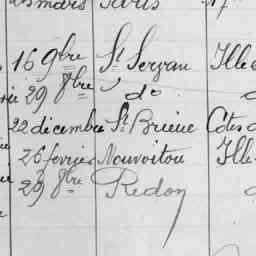 mars Paris 17
16 9bre St Servan Ille
29 8bre do
22 décembre St Brieuc Côtes d
26 fevrier Nouvoitou Ille
29 8bre Redon